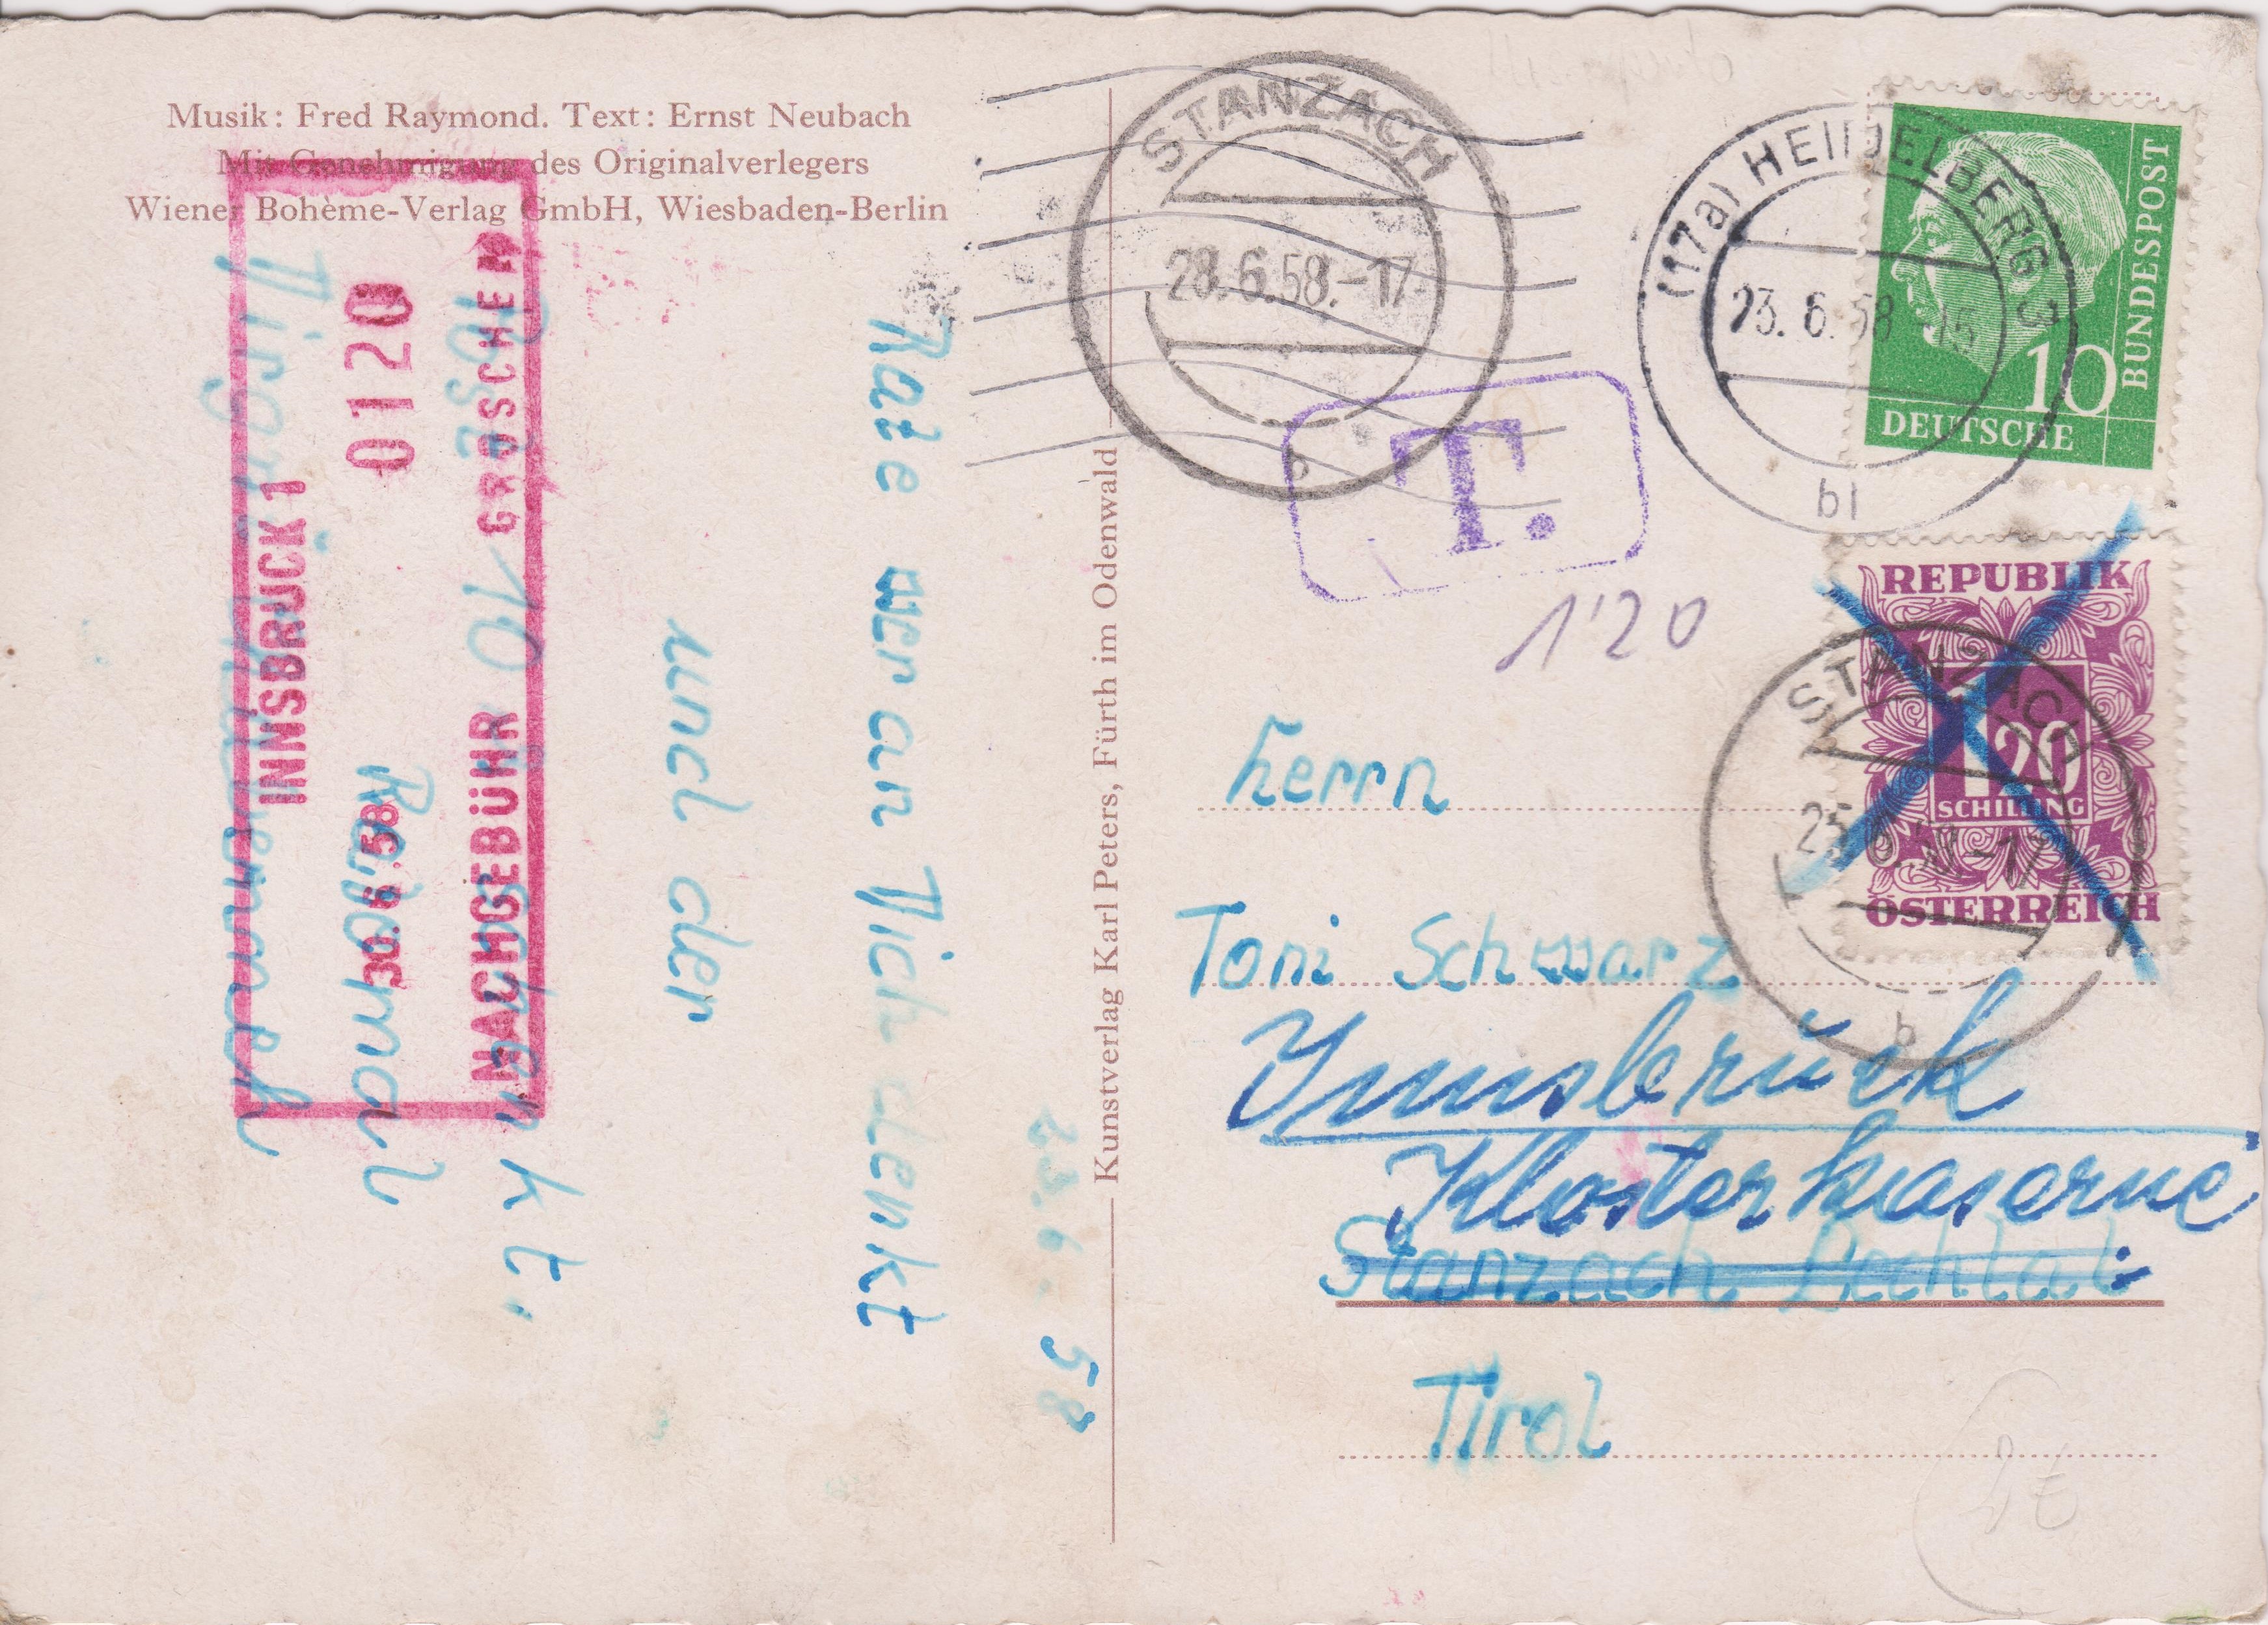 Musik: Fred Raymond. Text: Ernst Neubach
Mit Genehmigung des Originalverlegers
Wiener Bohème-Verlag GmbH, Wiesbaden-Berlin
INNSBRUCK 1
0120
30.6.58
GROSCHEN
NACHGEBÜHR
23.6.58
Rate wer an Dich denkt
und der
10
Kunstverlag Karl Peters, Fürth im Odenwald
STANZACH
28.6.58.-17
b
T.
1'20
(17a) HEIDELBERG
23.6.58 15
bl
10
DEUTSCHE
BUNDESPOST
REPUBLIK
1 20
SCHILLING
ÖSTERREICH
STANZACH
25.6.58-17
b
Herrn
Toni Schwarz
Innsbruck
Klosterkaserne
Stanzach Lechtal
Tirol